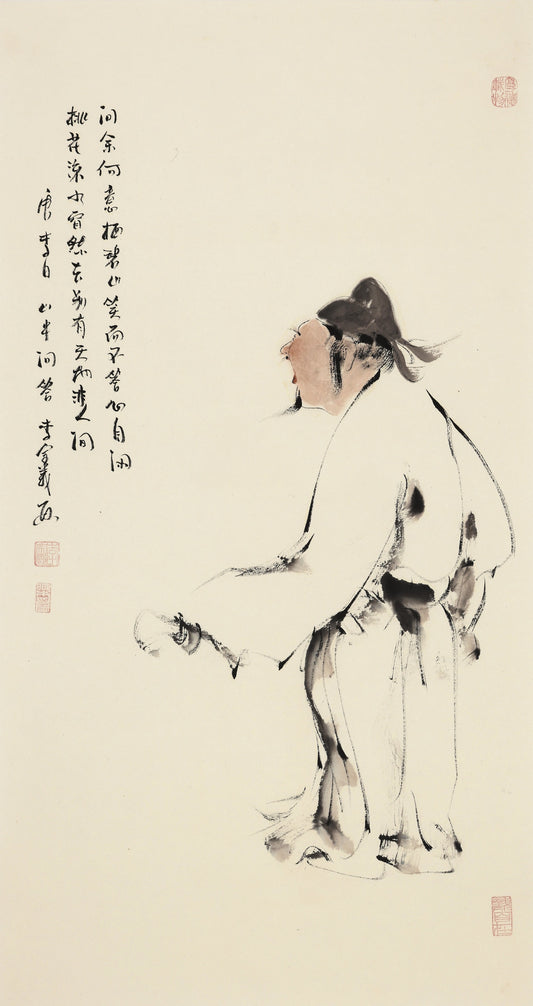 问余何意栖碧山笑而不答心自闲
桃花流水窅然去别有天地非人间
唐李白山中问答李